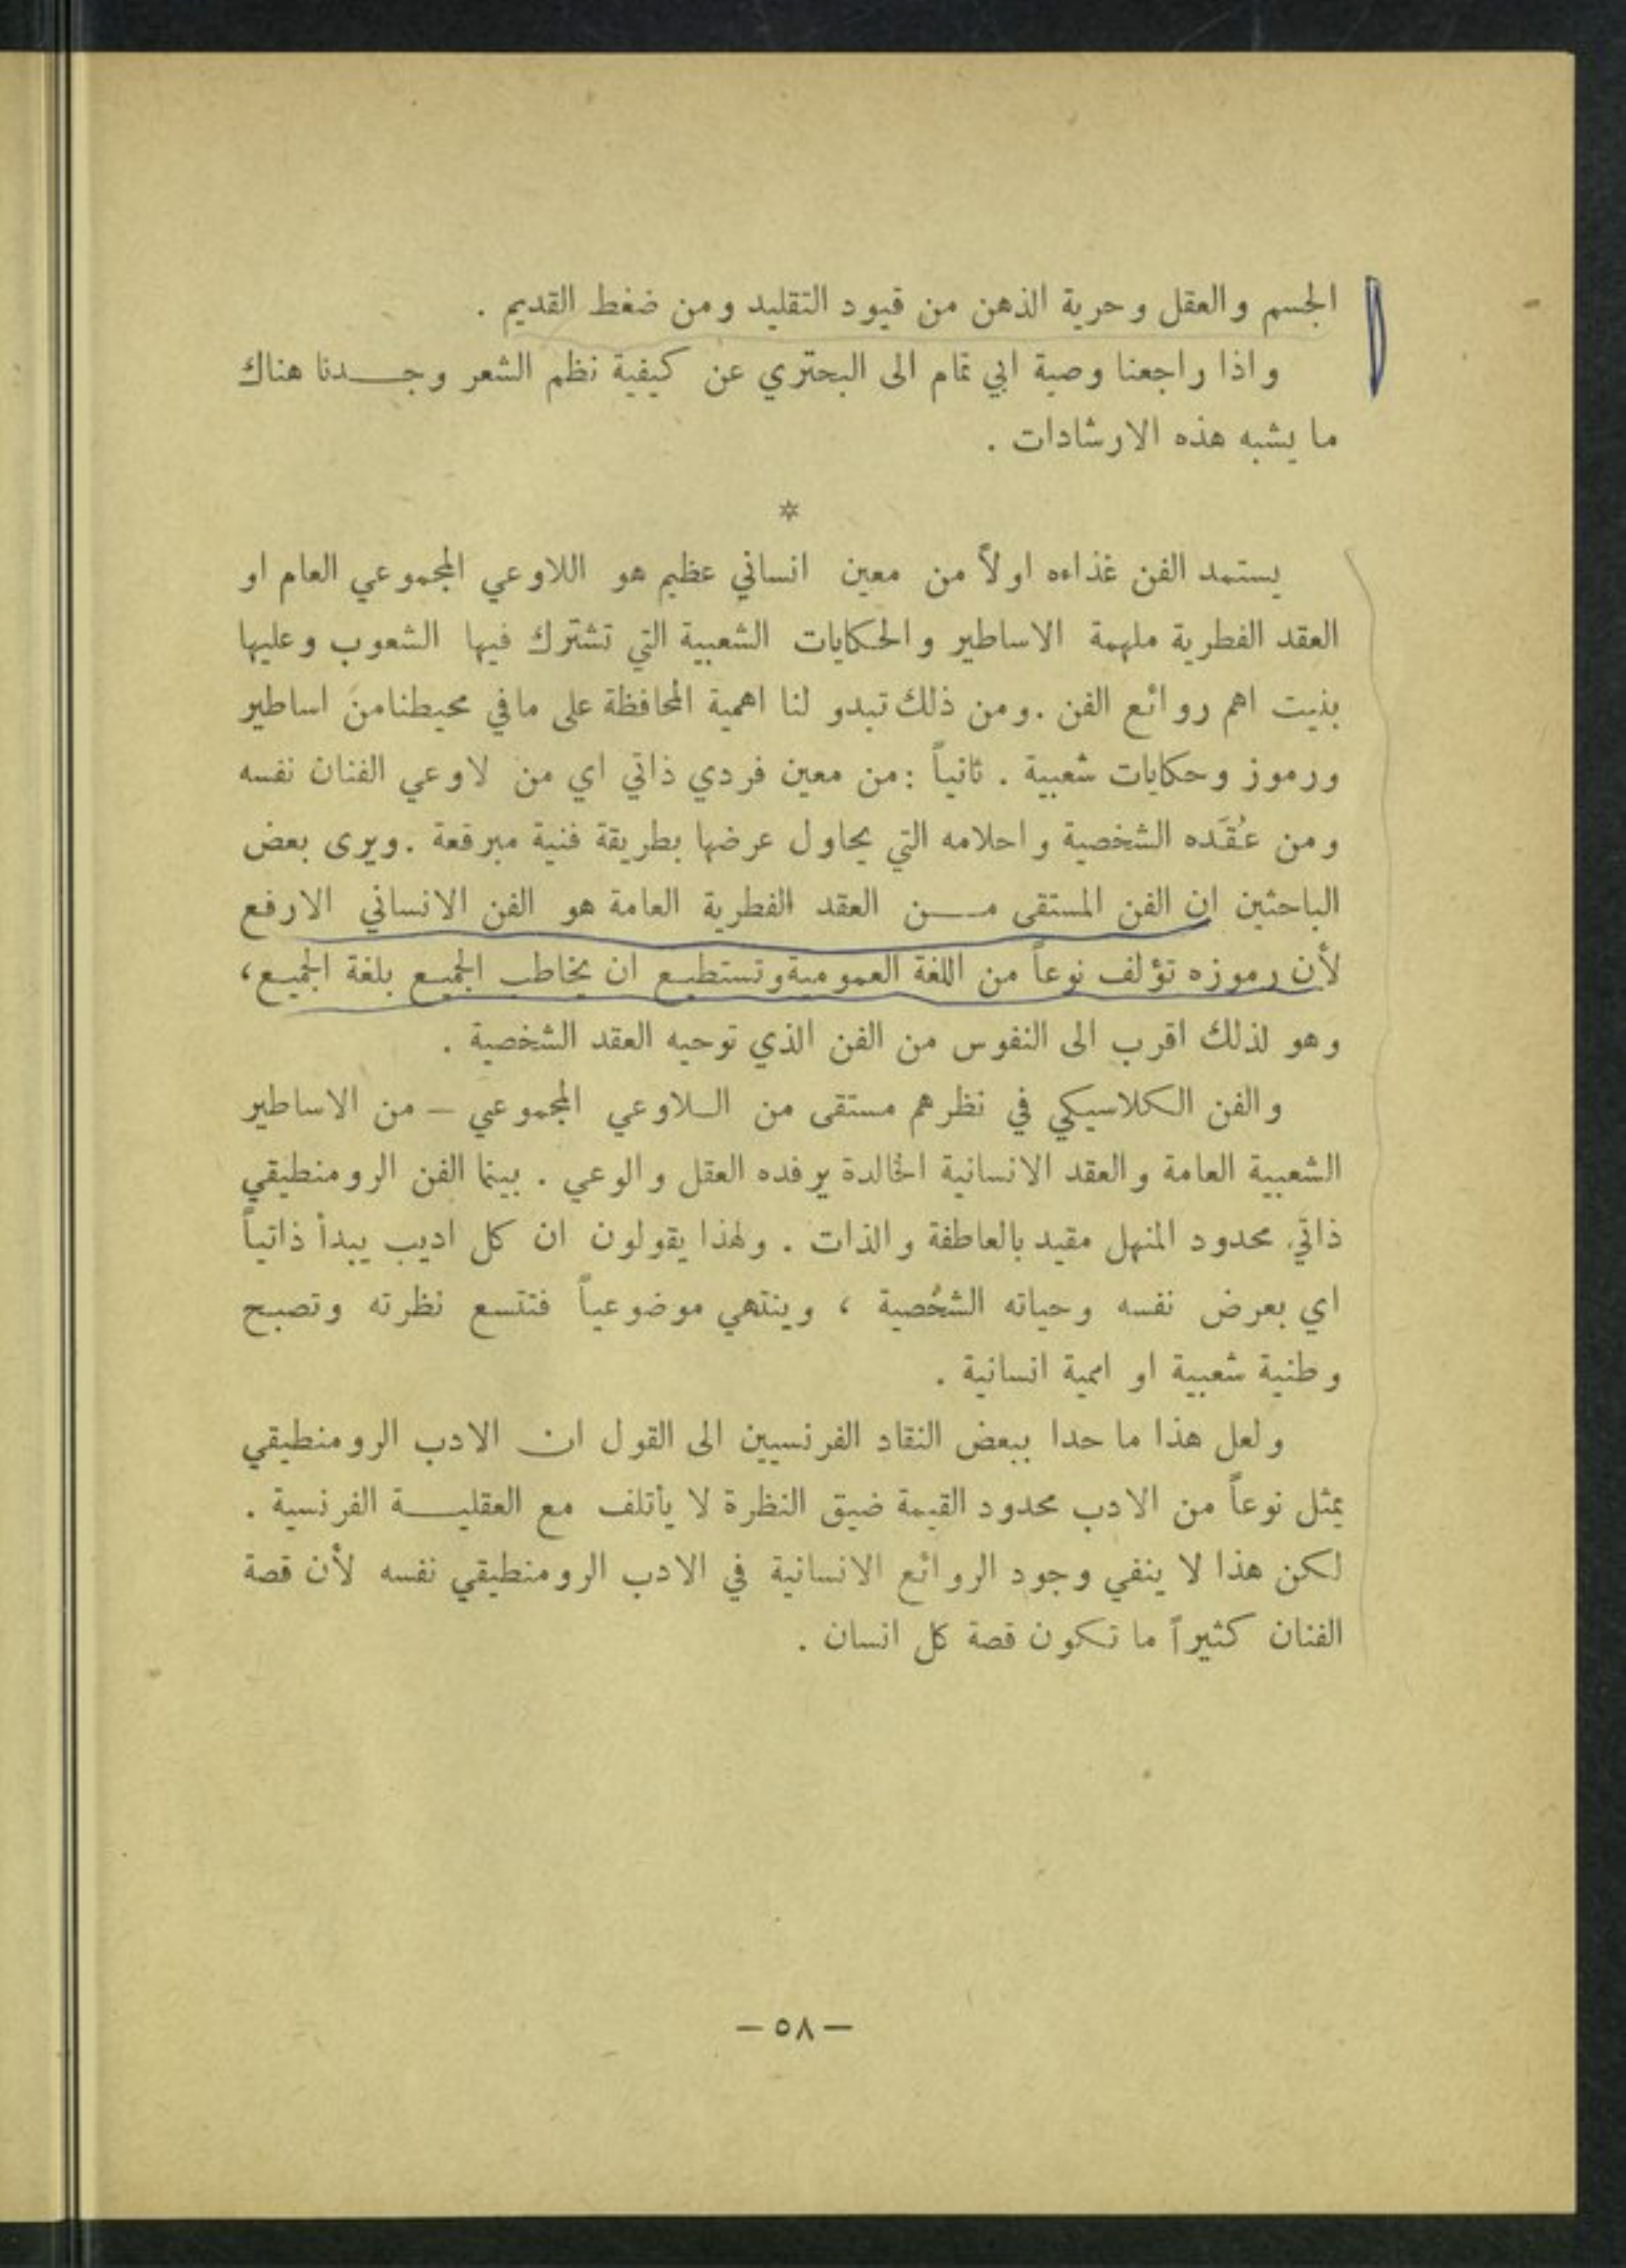 الجسم والعقل وحرية الذهن من قيود التقليد ومن ضغط القديم .
واذا راجعنا وصية ابي تمام الى البحتري عن كيفية نظم الشعر وجـــدنا هناك
ما يشبه هذه الارشادات .
*
يستمد الفن غذاءه اولاً من معين انساني عظيم هو اللاوعي المجموعي العام او
العقد الفطرية ملهمة الاساطير والحكايات الشعبية التي تشترك فيها الشعوب وعليها
بنيت اهم روائع الفن . ومن ذلك تبدو لنا اهمية المحافظة على مافي محيطنامن اساطير
ورموز وحكايات شعبية . ثانياً : من معين فردي ذاتي اي من لاوعي الفنان نفسه
ومن عُقَده الشخصية واحلامه التي يحاول عرضها بطريقة فنية مبرقعة . ويرى بعض
الباحثين ان الفن المستقى مـــن العقد الفطرية العامة هو الفن الانساني الارفع
لأن رموزه تؤلف نوعاً من اللغة العموميةوتستطيع ان يخاطب الجميع بلغة الجميع،
وهو لذلك اقرب الى النفوس من الفن الذي توحيه العقد الشخصية .
والفن الكلاسيكي في نظرهم مستقى من الـلاوعي المجموعي – من الاساطير
الشعبية العامة والعقد الانسانية الخالدة يرفده العقل والوعي . بينما الفن الرومنطيقي
ذاتي محدود المنهل مقيد بالعاطفة والذات . ولهذا يقولون ان كل اديب يبدأ ذاتياً
اي بعرض نفسه وحياته الشخصية ، وينتهي موضوعياً فتتسع نظرته وتصبح
وطنية شعبية او اممية انسانية .
ولعل هذا ما حدا ببعض النقاد الفرنسيين الى القول ان الادب الرومنطيقي
يمثل نوعاً من الادب محدود القيمة ضيق النظرة لا يأتلف مع العقليـــة الفرنسية .
لكن هذا لا ينفي وجود الروائع الانسانية في الادب الرومنطيقي نفسه لأن قصة
الفنان كثيراً ما تكون قصة كل انسان .
– ٥٨ –